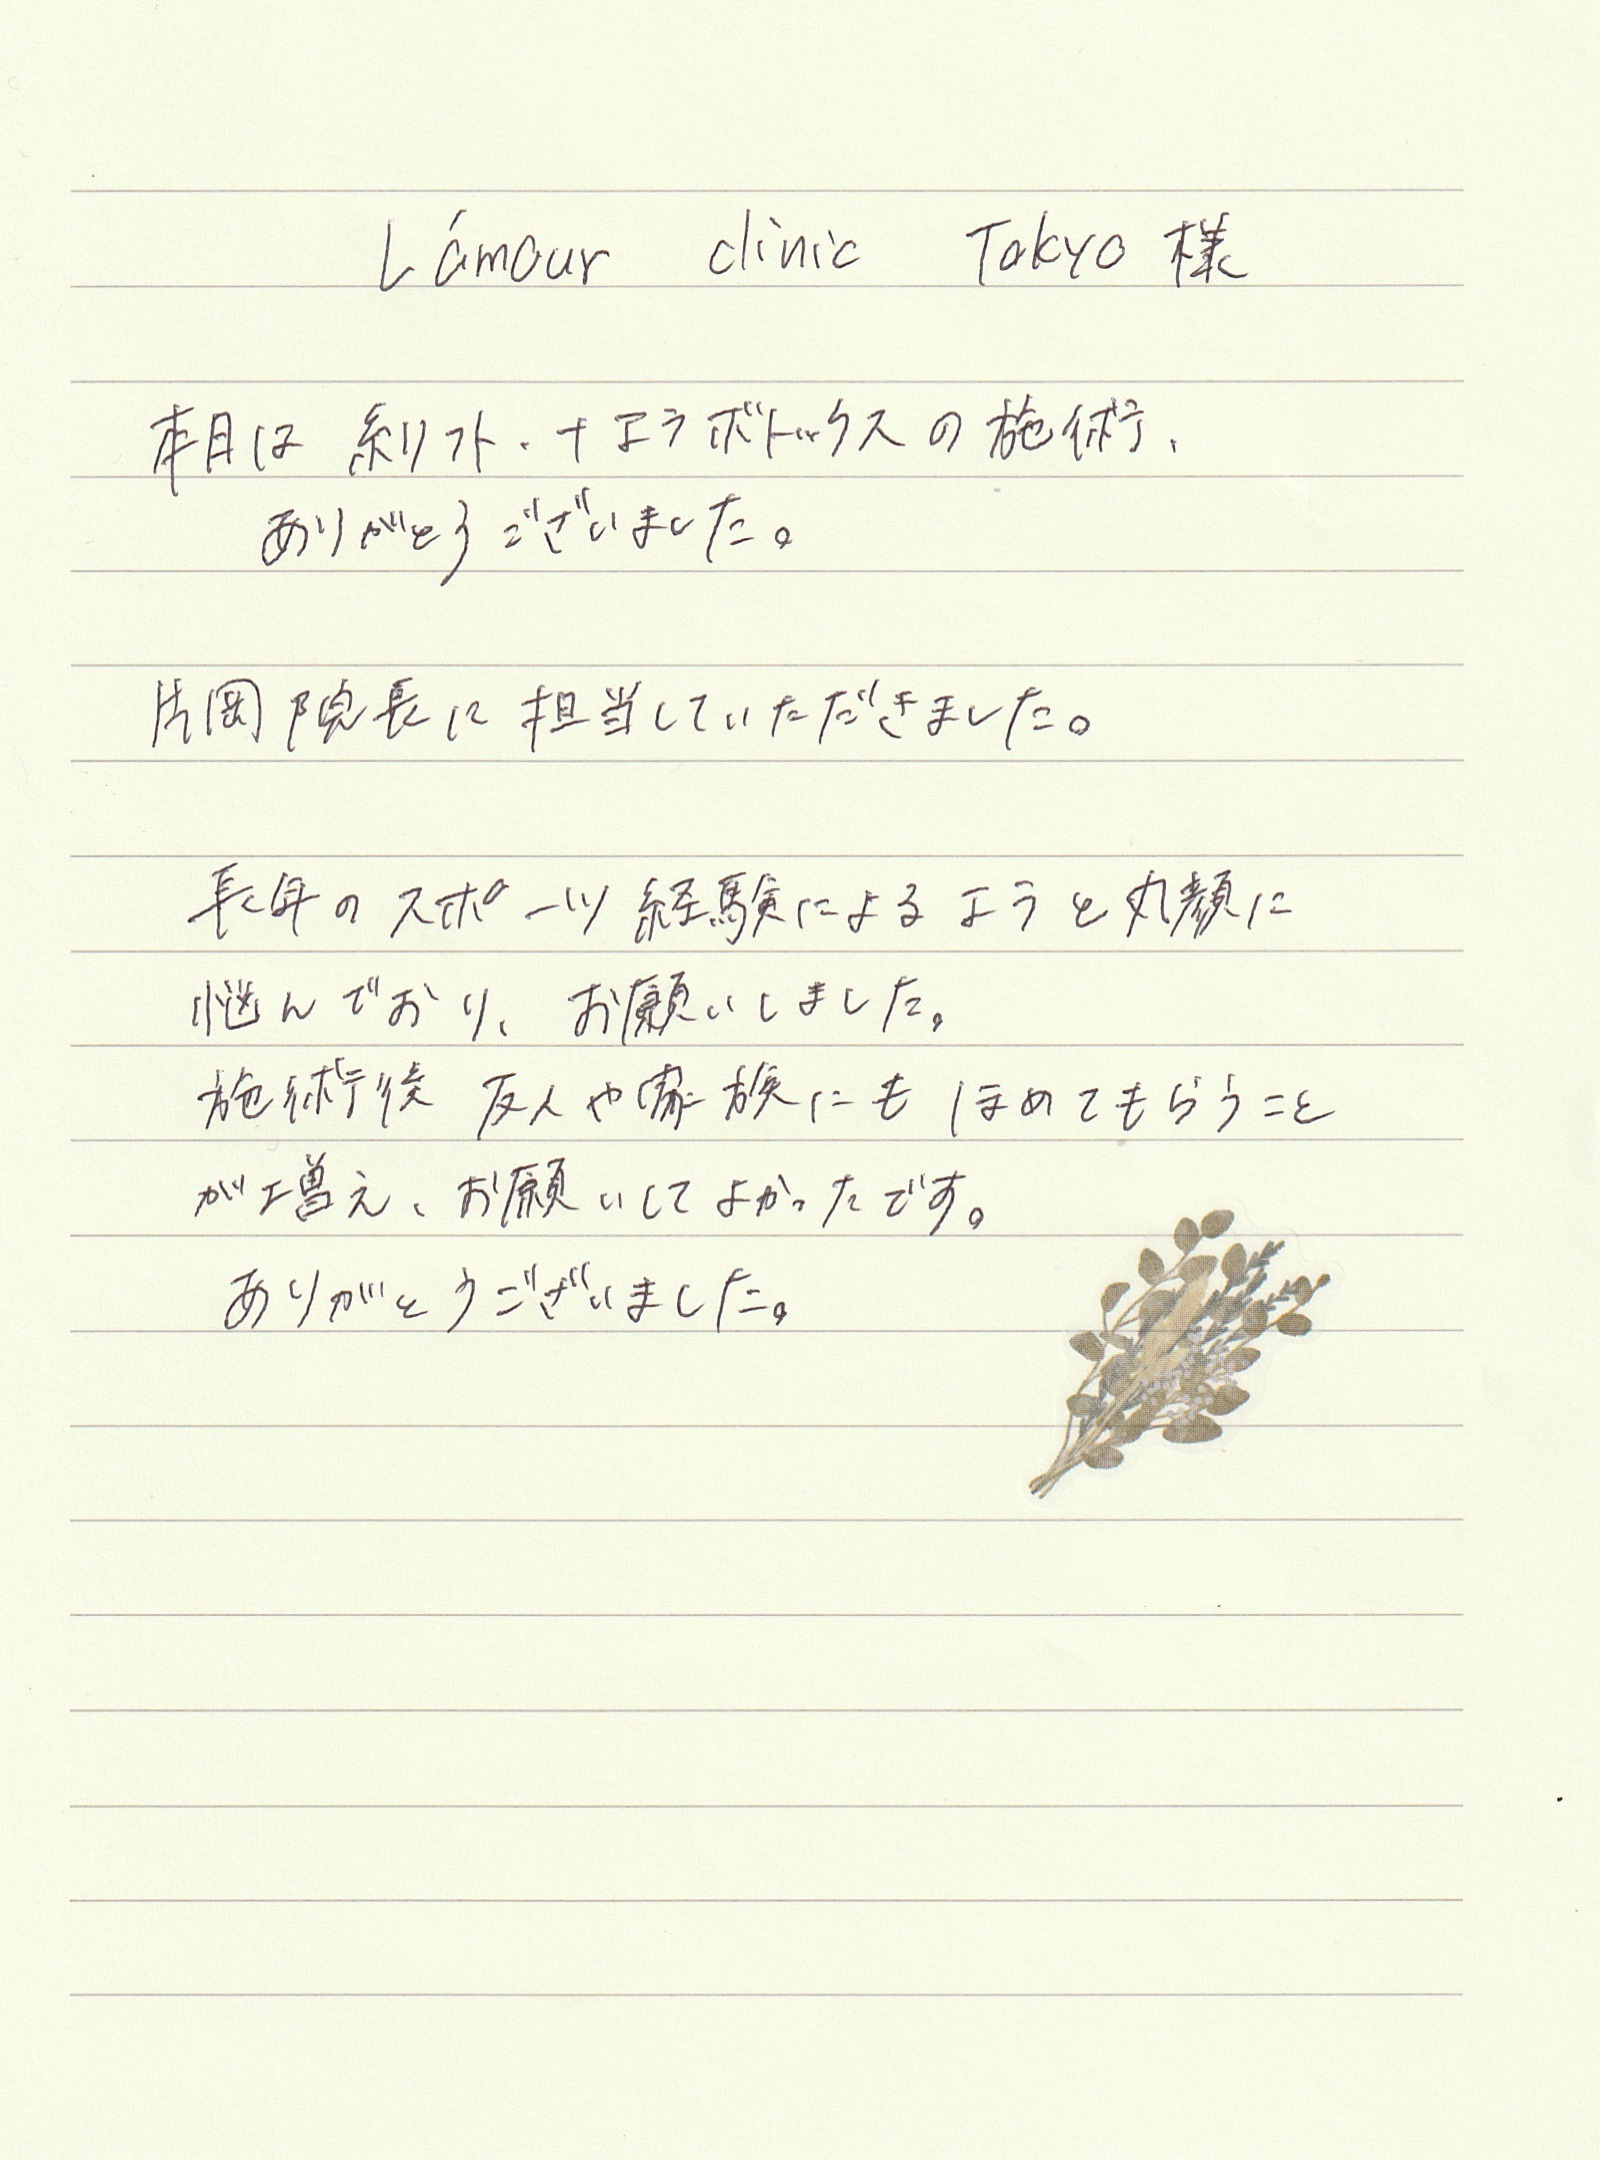 L'amour clinic Tokyo 様
本日は 糸リフト、+エラボトックスの施術、
ありがとうございました。
片岡院長に担当していただきました。
長年のスポーツ経験によるエラと丸顔に
悩んでおり、お願いしました。
施術後 友人や家族にもほめてもらうこと
が増え、お願いしてよかったです。
ありがとうございました。